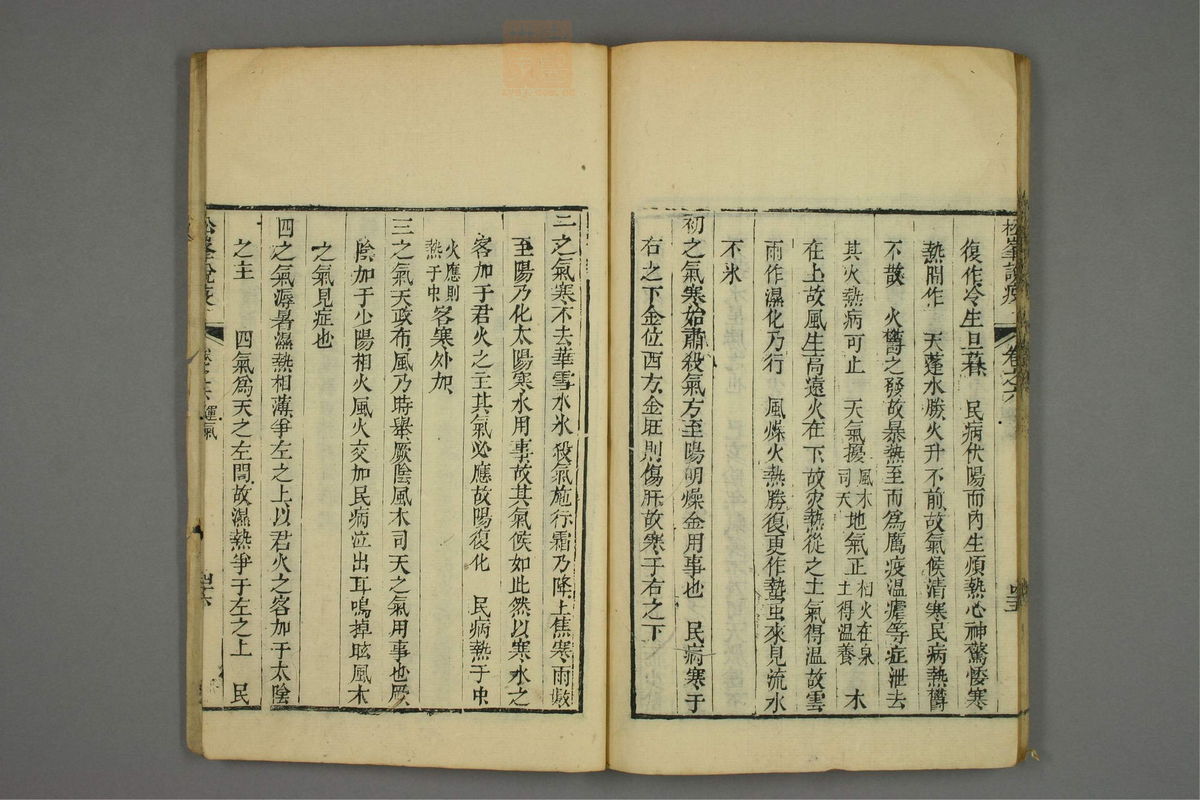 松峯說疫 卷之六 四五
復作冷生旦暮 民病伏陽而內生煩熱心神驚悸寒
熱間作 天蓬水勝火升不前故氣候清寒民病熱欝
不散 火欝之發故暴熱至而爲厲疫溫瘧等症泄去
其火熱病可止 天氣擾風木司天地氣正相火在泉土得溫養 木
在上故風生高遠火在下故炎熱從之土氣得溫故雲
雨作濕化乃行 風燥火熱勝復更作蟄虫來見流水
不氷
初之氣寒始肅殺氣方至陽明燥金用事也 民病寒于
右之下金位西方金旺則傷肝故寒于右之下
二之氣寒不去華雪水氷殺氣施行霜乃降上焦寒雨數
至陽乃化太陽寒水用事故其氣候如此然以寒水之
客加于君火之主其氣必應故陽復化 民病熱于中
火應則熱于中客寒外加
三之氣天政布風乃時舉厥陰風木司天之氣用事也厥
陰加于少陽相火風火交加民病泣出耳鳴掉眩風木
之氣見症也
四之氣溽暑濕熱相薄爭左之上以君火之客加于太陰
之主 四氣爲天之左間故濕熱爭于左之上 民
松峯說疫 卷之六 運氣 四六